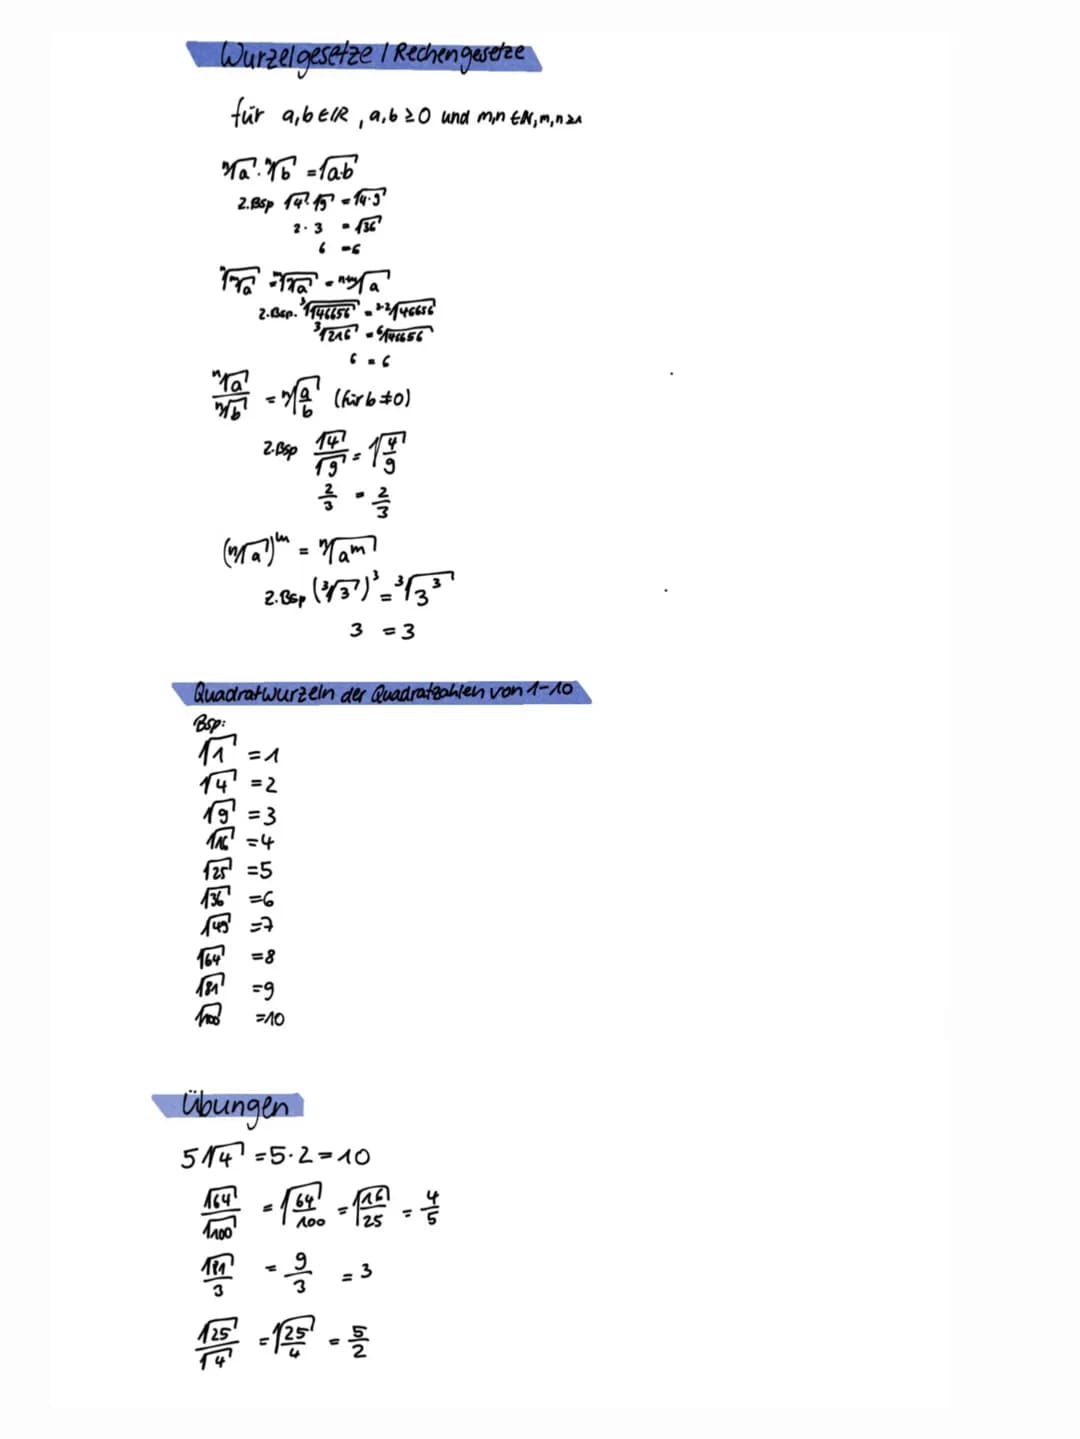 Wurzelgesetze / Rechengesetze
für a,b ∈ ℝ, a,b ≥ 0 und m,n ∈ ℕ, m,n ≥ 1
ⁿ√a · ⁿ√b = √ab
z.Bsp √4 · √9 = √4·9
2 · 3 = √36
6 = 6
ⁿ√ᵐ√a = ᵐ√ⁿ√a = ⁿ·ᵐ√a
z.Bsp. ³√√46656 = ³·²√46656
³√216 = ⁶√46656
6 = 6
ⁿ√a / ⁿ√b = ⁿ√(a/b) (für b ≠ 0)
z.Bsp √4/√9 = √(4/9)
2/3 = 2/3
(ⁿ√a)ᵐ = ⁿ√aᵐ
z.Bsp (³√3)³ = ³√3³
3 = 3
Quadratwurzeln der Quadratzahlen von 1-10
Bsp:
√1 = 1
√4 = 2
√9 = 3
√16 = 4
√25 = 5
√36 = 6
√49 = 7
√64 = 8
√81 = 9
√100 = 10
Übungen
5√4 = 5·2 = 10
√64/√100 = √(64/100) = √(16/25) = 4/5
√81/3 = 9/3 = 3
√25/√4 = √(25/4) = 5/2